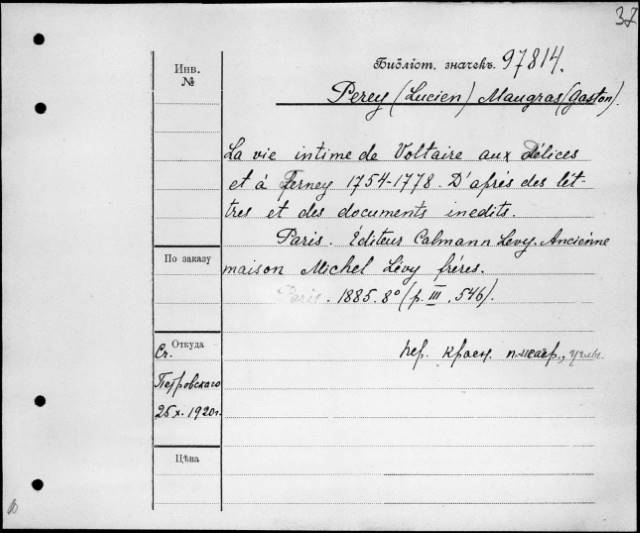 37
Инв.
№
Библіот. значекъ. 97814.
Perey (Lucien) Maugras (Gaston).
La vie intime de Voltaire aux Délices
et à Ferney 1754-1778. D'aprés des let-
tres et des documents inedits.
Paris. Éditeur Calmann Levy. Ancienne
maison Michel Lévy fréres.
Paris. 1885. 8° (p. III. 546).
По заказу
Откуда
Ст.
Петровскаго
25 X. 1920 г.
пер. красн.
Цѣна